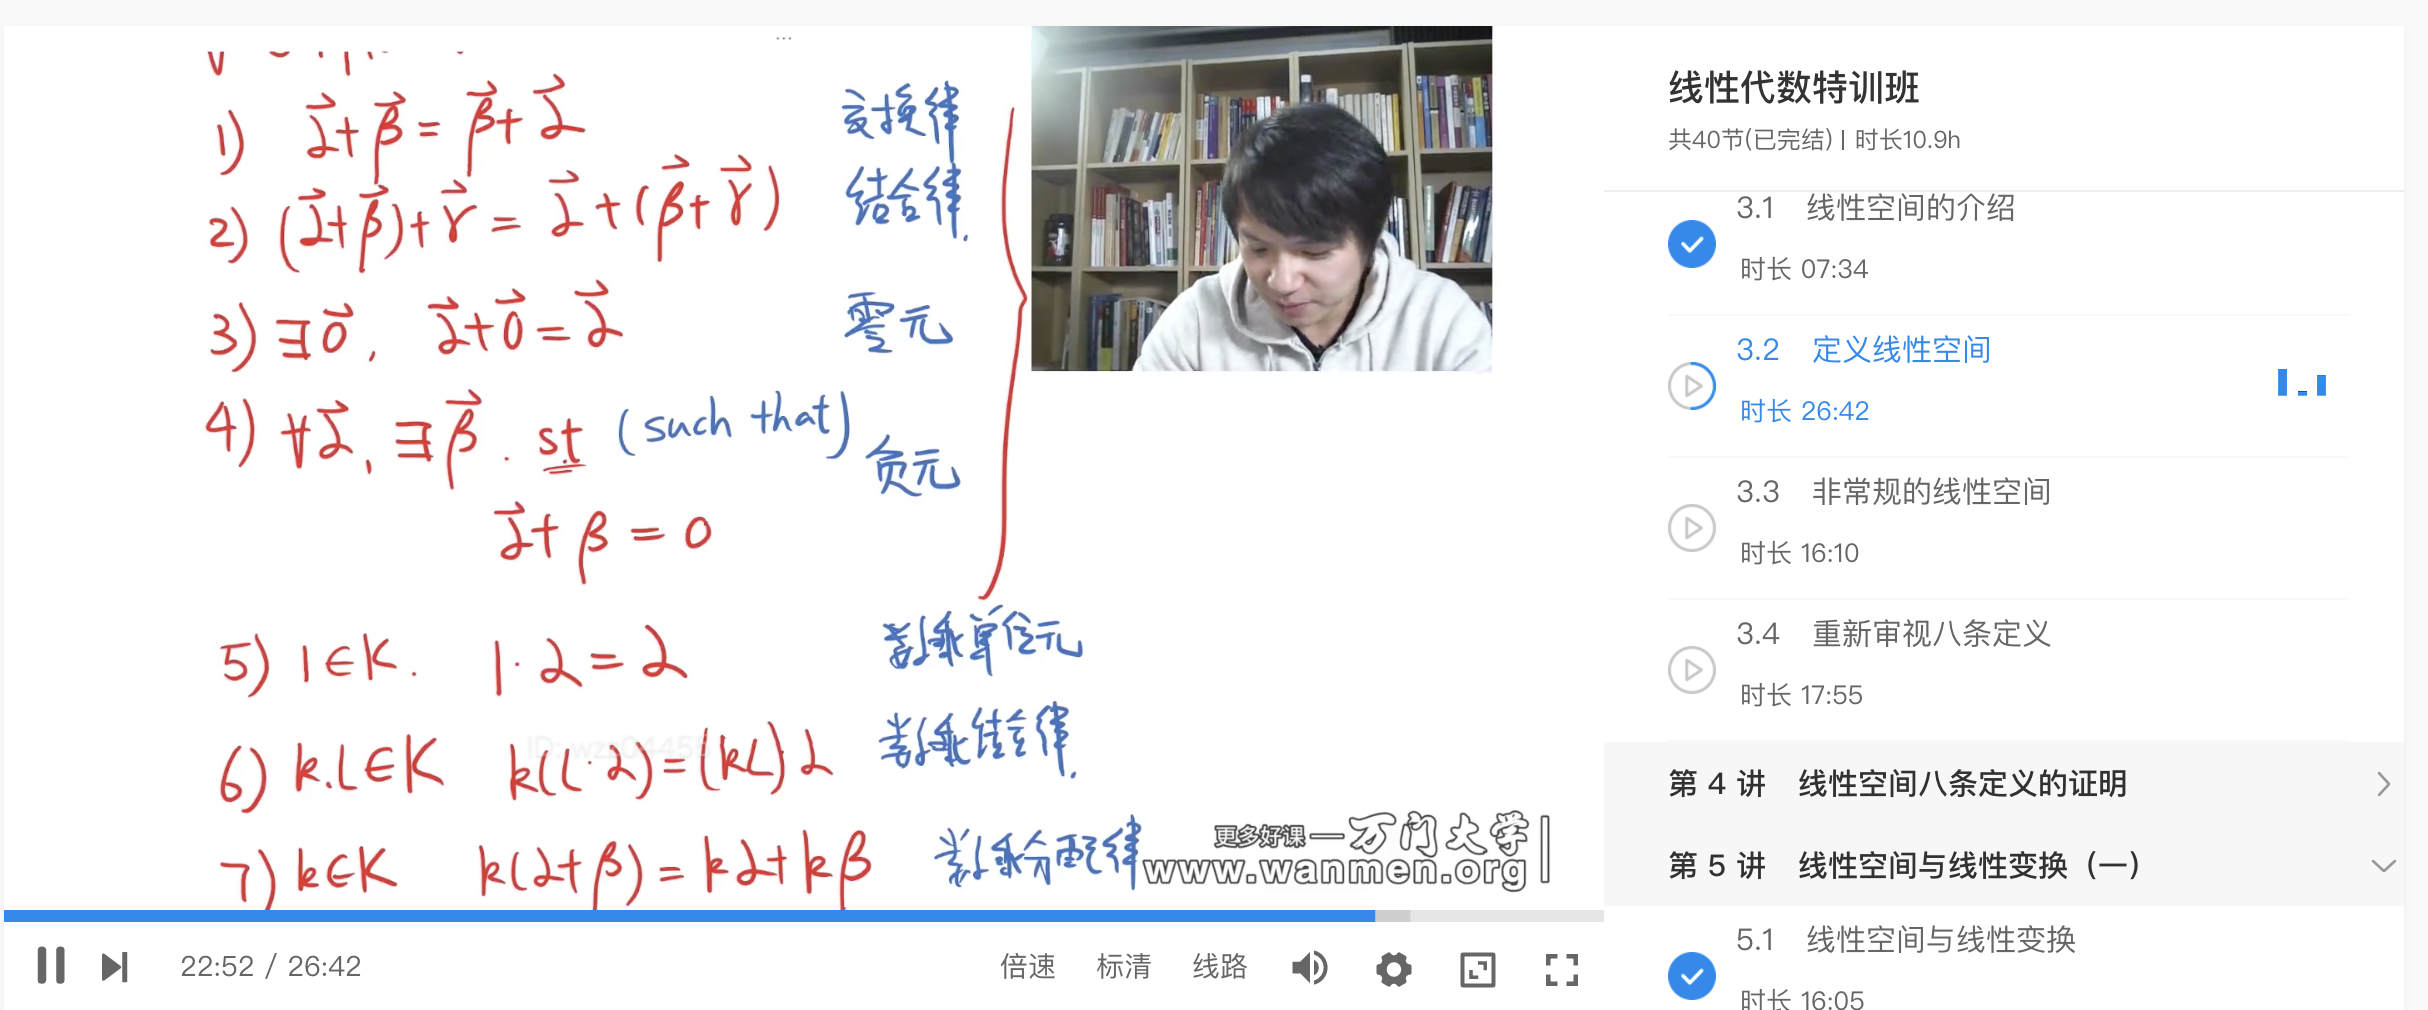 1) α⃗+β⃗=β⃗+α⃗ 交换律
2) (α⃗+β⃗)+γ⃗=α⃗+(β⃗+γ⃗) 结合律.
3) ∃0⃗, α⃗+0⃗=α⃗ 零元
4) ∀α⃗, ∃β⃗. st (such that) 负元
α⃗+β=0
5) 1∈K. 1·α=α 数乘单位元
6) k.l∈K k(l·α)=(kl)α 数乘结合律.
7) k∈K k(α+β)=kα+kβ 数乘分配律
ID: wzz04455
更多好课一万门大学
www.wanmen.org
22:52 / 26:42
倍速 标清 线路
线性代数特训班
共40节(已完结) | 时长10.9h
3.1 线性空间的介绍
时长 07:34
3.2 定义线性空间
时长 26:42
3.3 非常规的线性空间
时长 16:10
3.4 重新审视八条定义
时长 17:55
第 4 讲 线性空间八条定义的证明
第 5 讲 线性空间与线性变换（一）
5.1 线性空间与线性变换
时长 16:05